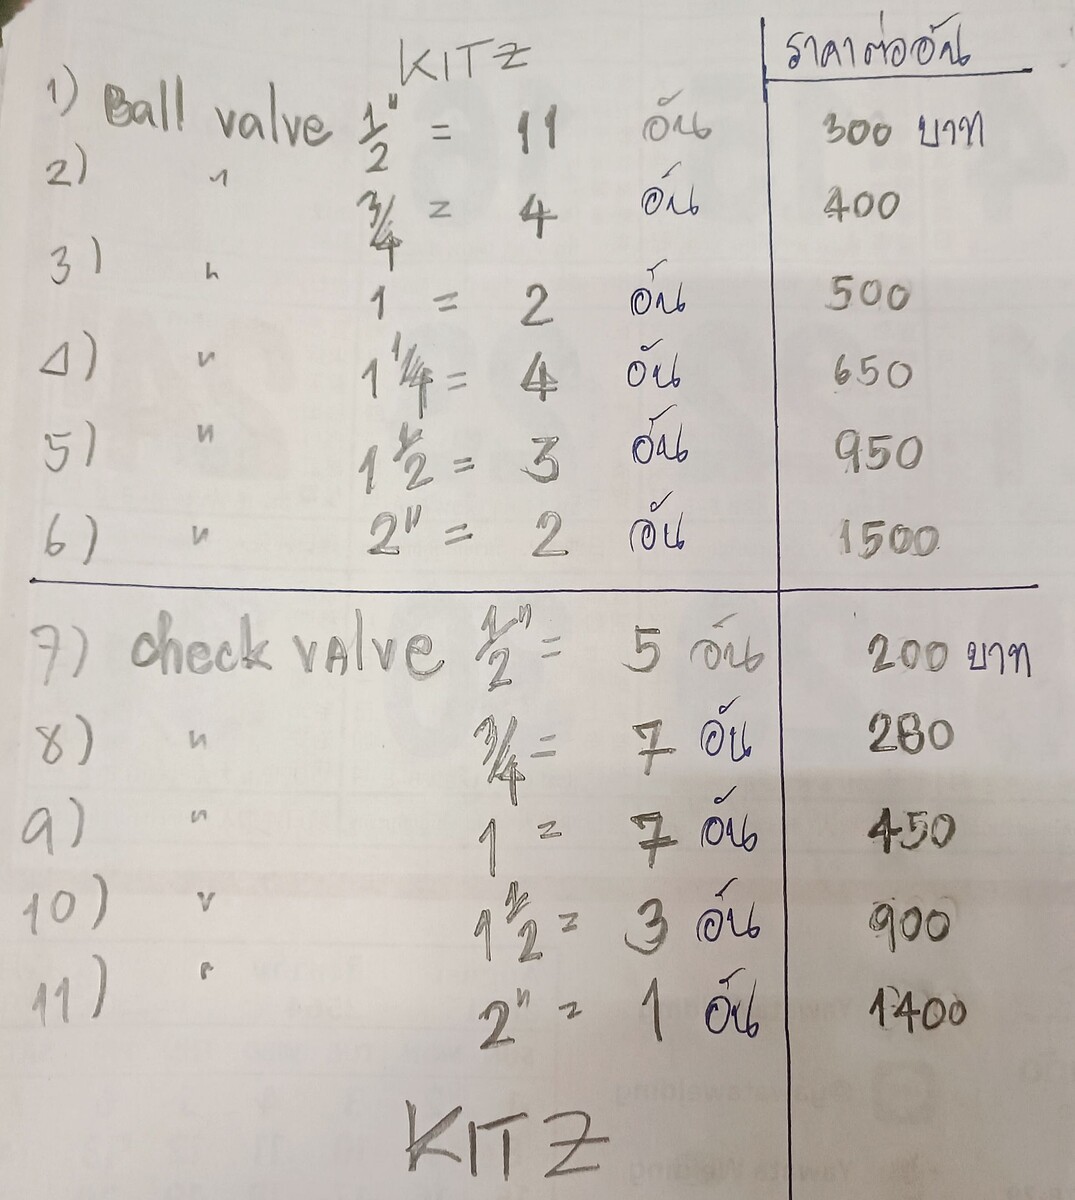 KITZ ราคาต่ออัน
1) Ball valve 1/2" = 11 อัน 300 บาท
2) " 3/4 = 4 อัน 400
3) " 1 = 2 อัน 500
4) " 1 1/4 = 4 อัน 650
5) " 1 1/2 = 3 อัน 950
6) " 2" = 2 อัน 1500
7) check valve 1/2" = 5 อัน 200 บาท
8) " 3/4 = 7 อัน 280
9) " 1 = 7 อัน 450
10) " 1 1/2 = 3 อัน 900
11) " 2" = 1 อัน 1400
KITZ